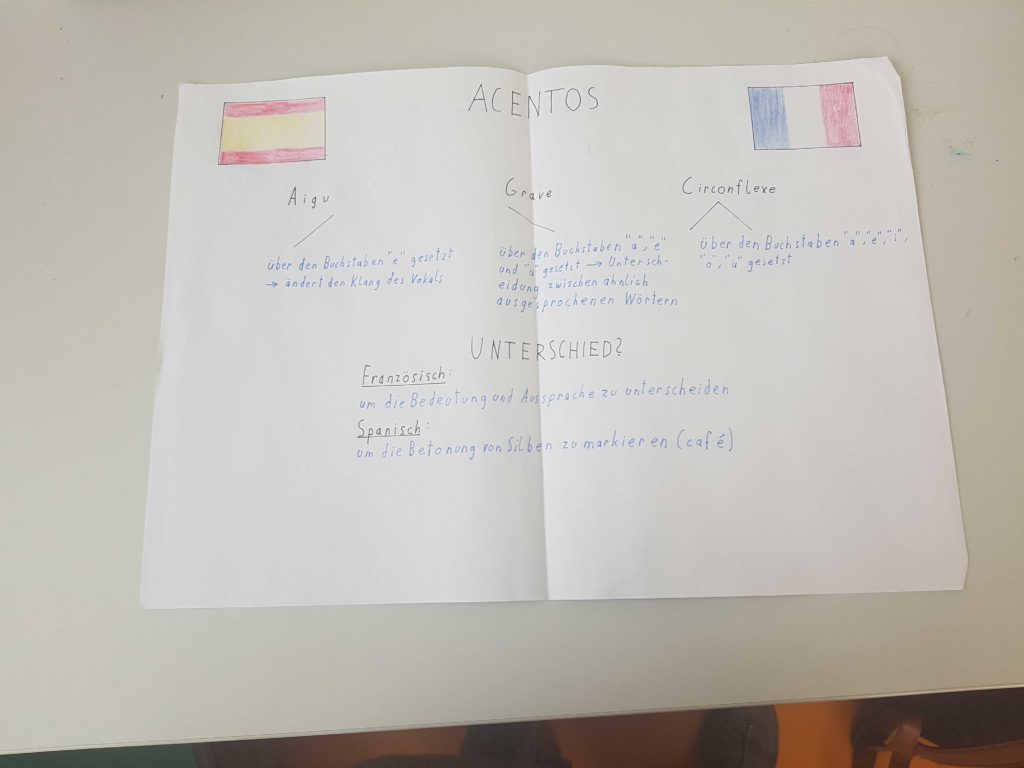 ACENTOS
Aigu
Grave
Circonflexe
über den Buchstaben "e" gesetzt
→ ändert den Klang des Vokals
über den Buchstaben "a", "e"
und "u" gesetzt → Untersch-
eidung zwischen ähnlich
ausgesprochenen Wörtern
über den Buchstaben "a", "e", "i",
"o", "u" gesetzt
UNTERSCHIED?
Französisch:
um die Bedeutung und Aussprache zu unterscheiden.
Spanisch:
um die Betonung von Silben zu markieren (café)